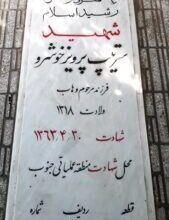 رشید اسلام
شهید
سرتیپ پرویز خوشرو
فرزند مرحوم وهاب
ولادت ۱۳۱۸
شهادت ۱۳۶۳٫۴٫۲۰
محل شهادت منطقه عملیاتی جنوب
قطعه ردیف شماره